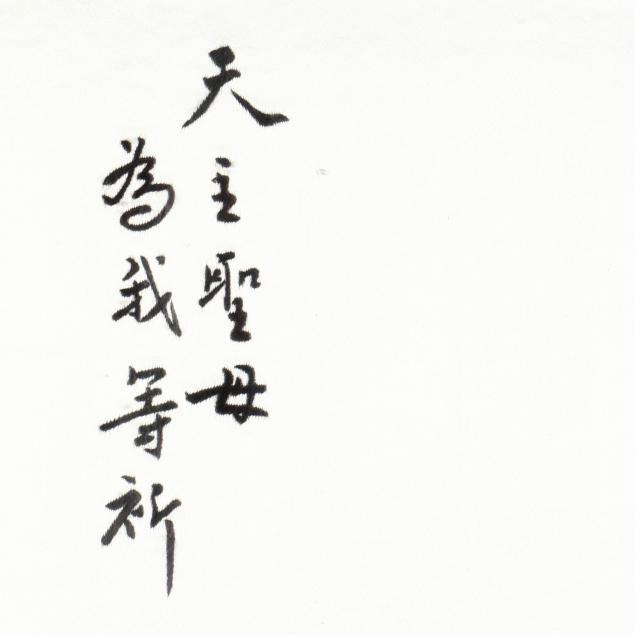 天主聖母
為我等祈